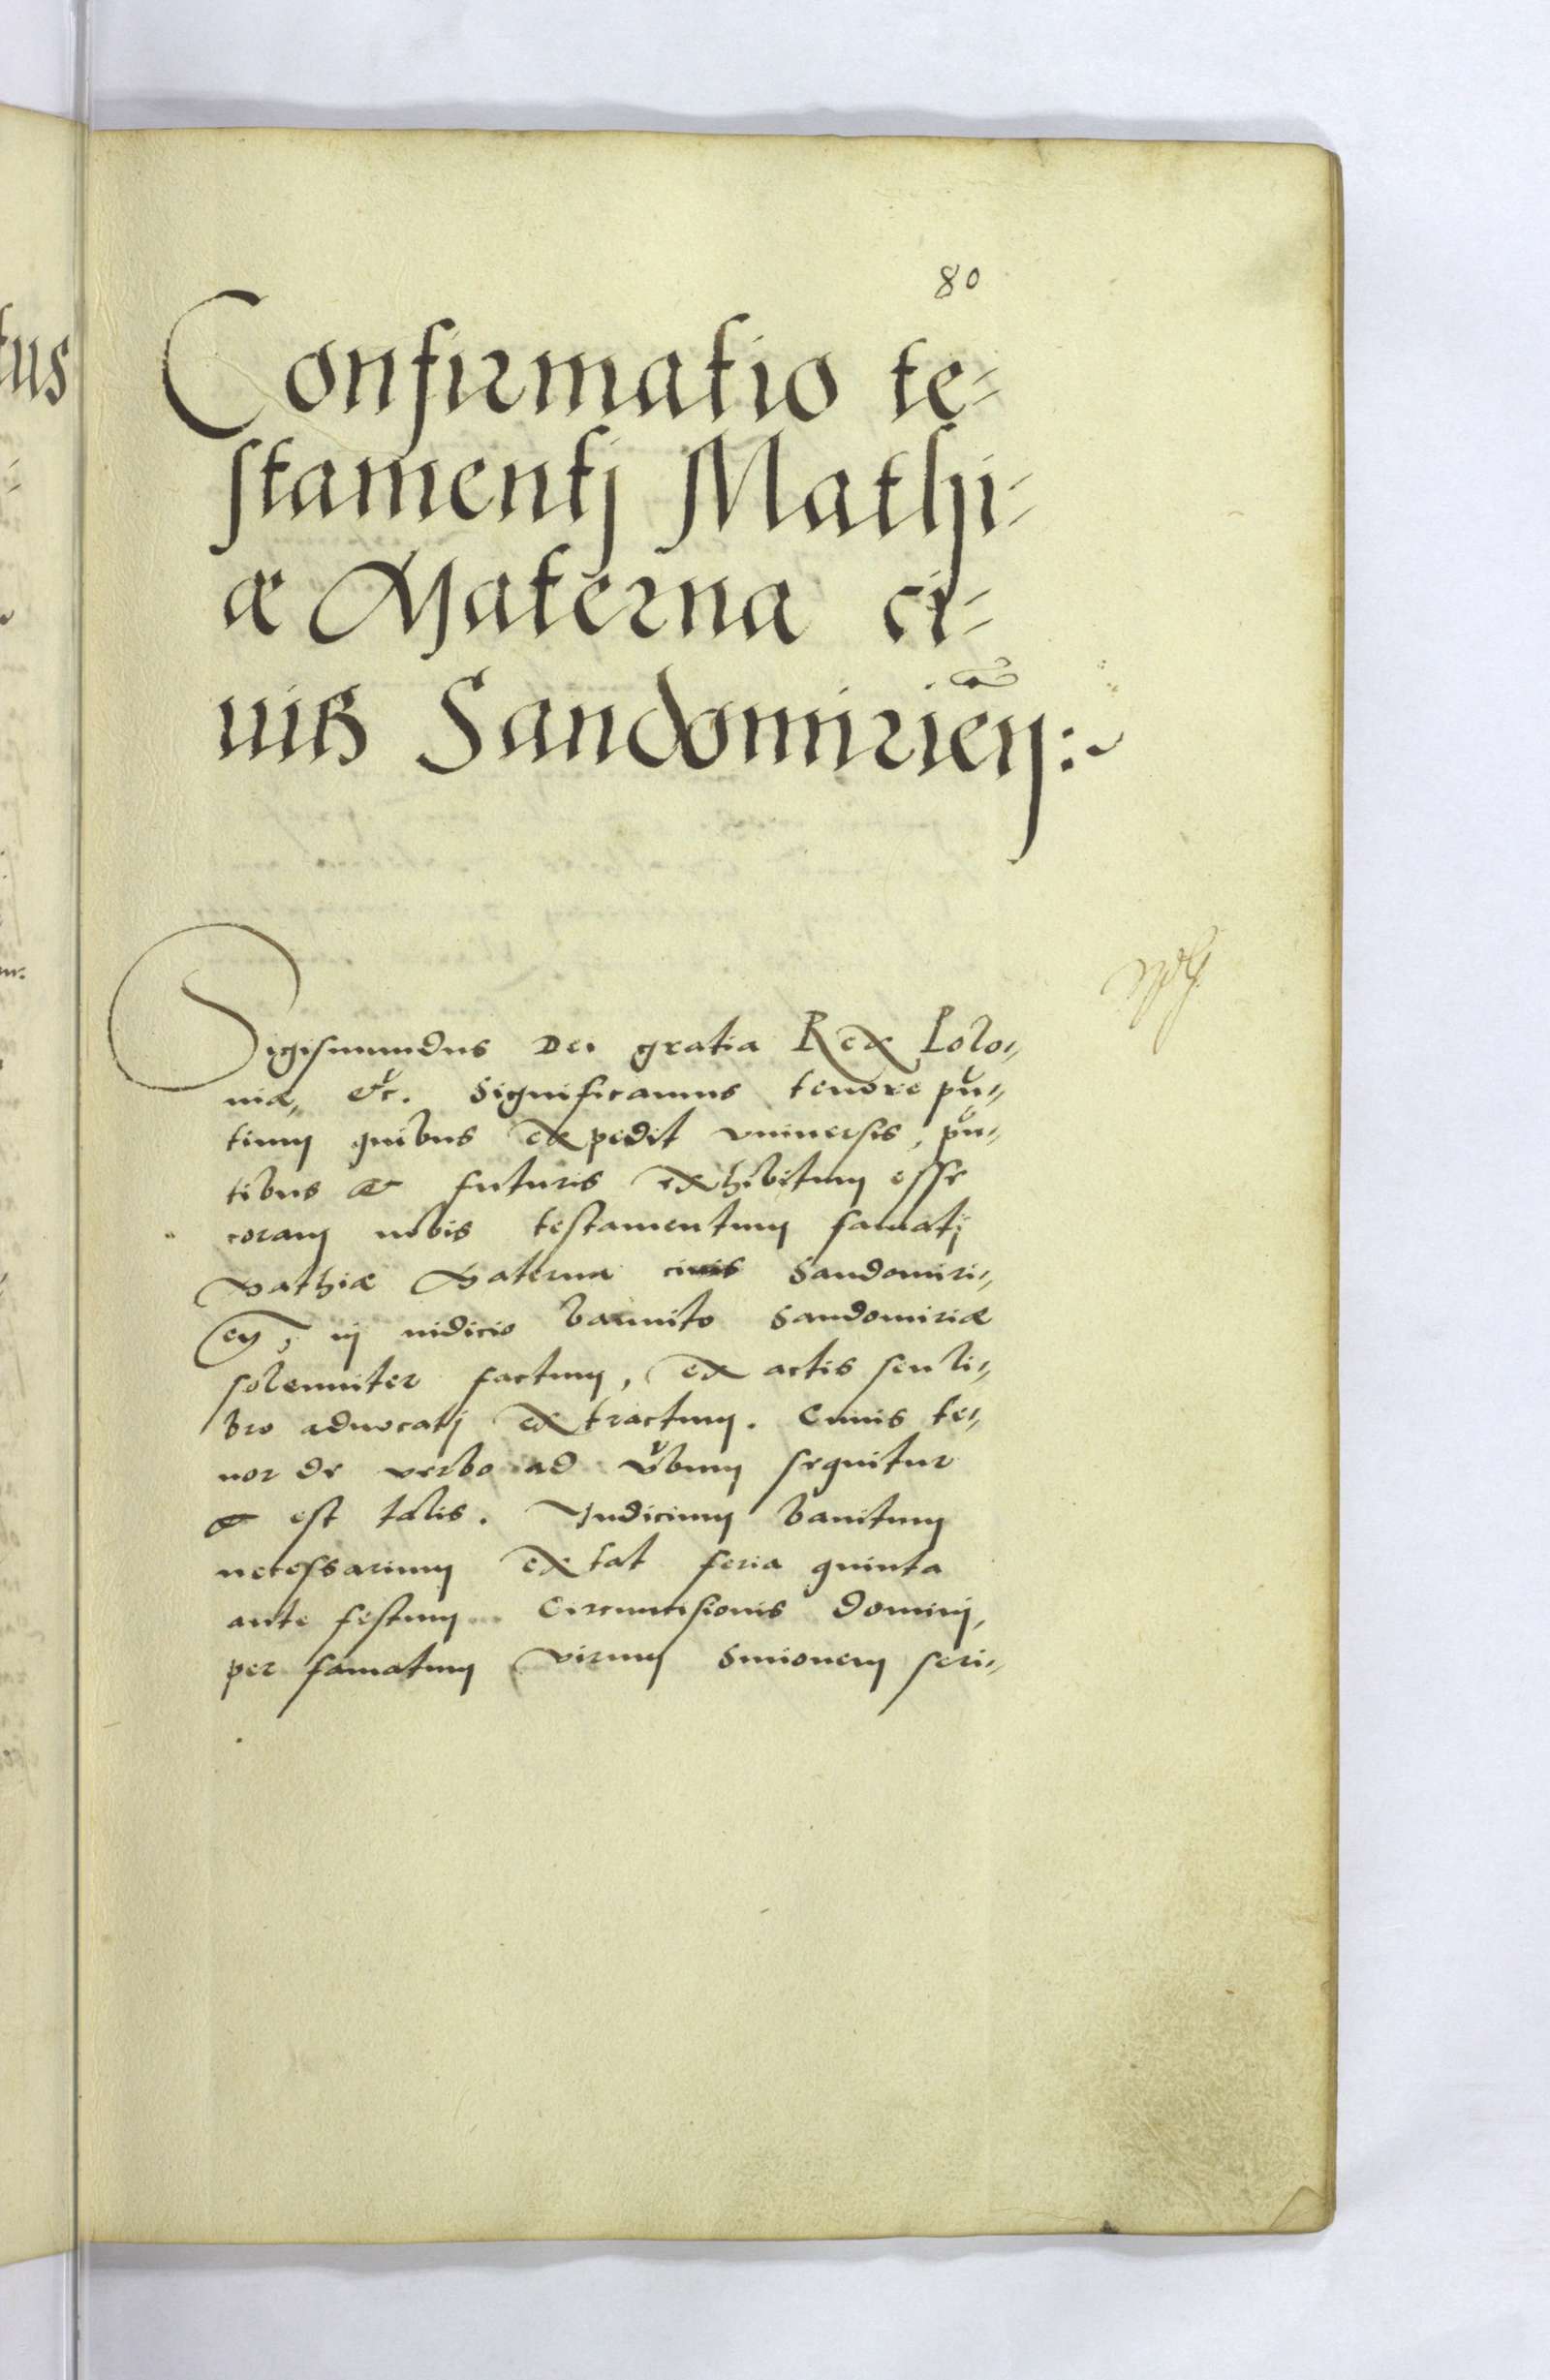 80
Confirmatio te-
stamentj Mathi-
æ Materna ci-
uis Sandomirien:
Sigismundus Dei gratia Rex Polo-
niæ, etc. Significamus tenore pñ-
tium quibus expedit vniuersis, pñ-
tibus et futuris exhibitum esse
coram nobis testamentum famatj
Mathiæ Materna ciuis Sandomiri-
en, in iudicio bannito Sandomiriæ
solenniter factum, ex actis seu li-
bro aduocatj extractum. Cuius te-
nor de verbo ad vbum sequitur
et est talis. Iudicium banitum
necessarium extat feria quinta
ante festum Circumcisionis dominj,
per famatum virum Simonem seri-